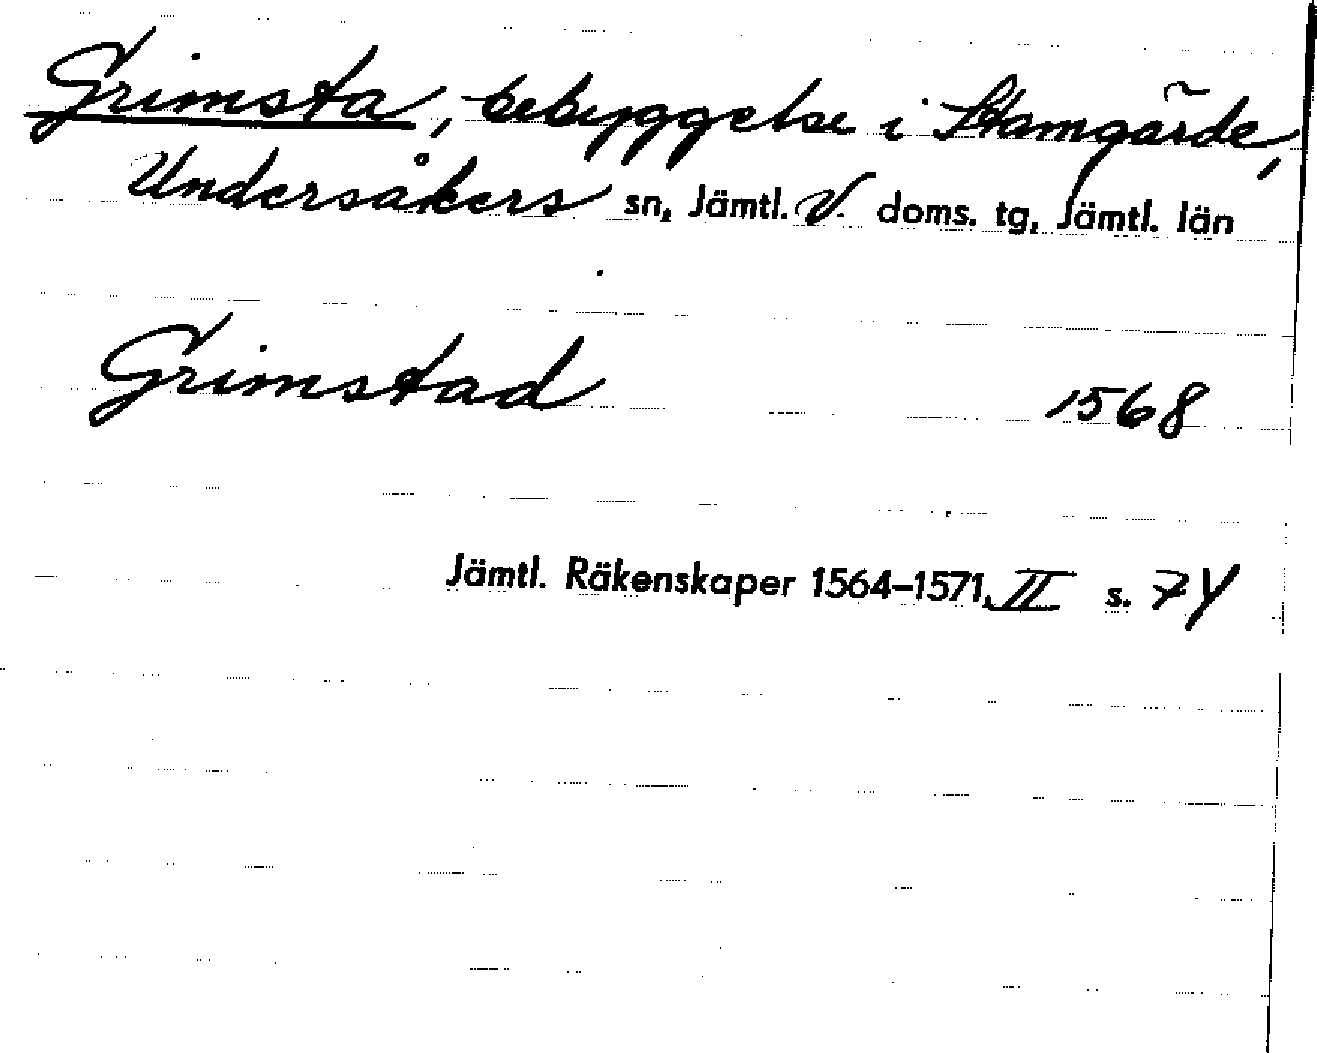 Grimsta, bebyggelse i Stamgärde,
Undersåkers sn, Jämtl. V. doms. tg, Jämtl. län
Grimstad 1568
Jämtl. Räkenskaper 1564–1571, II s. 74